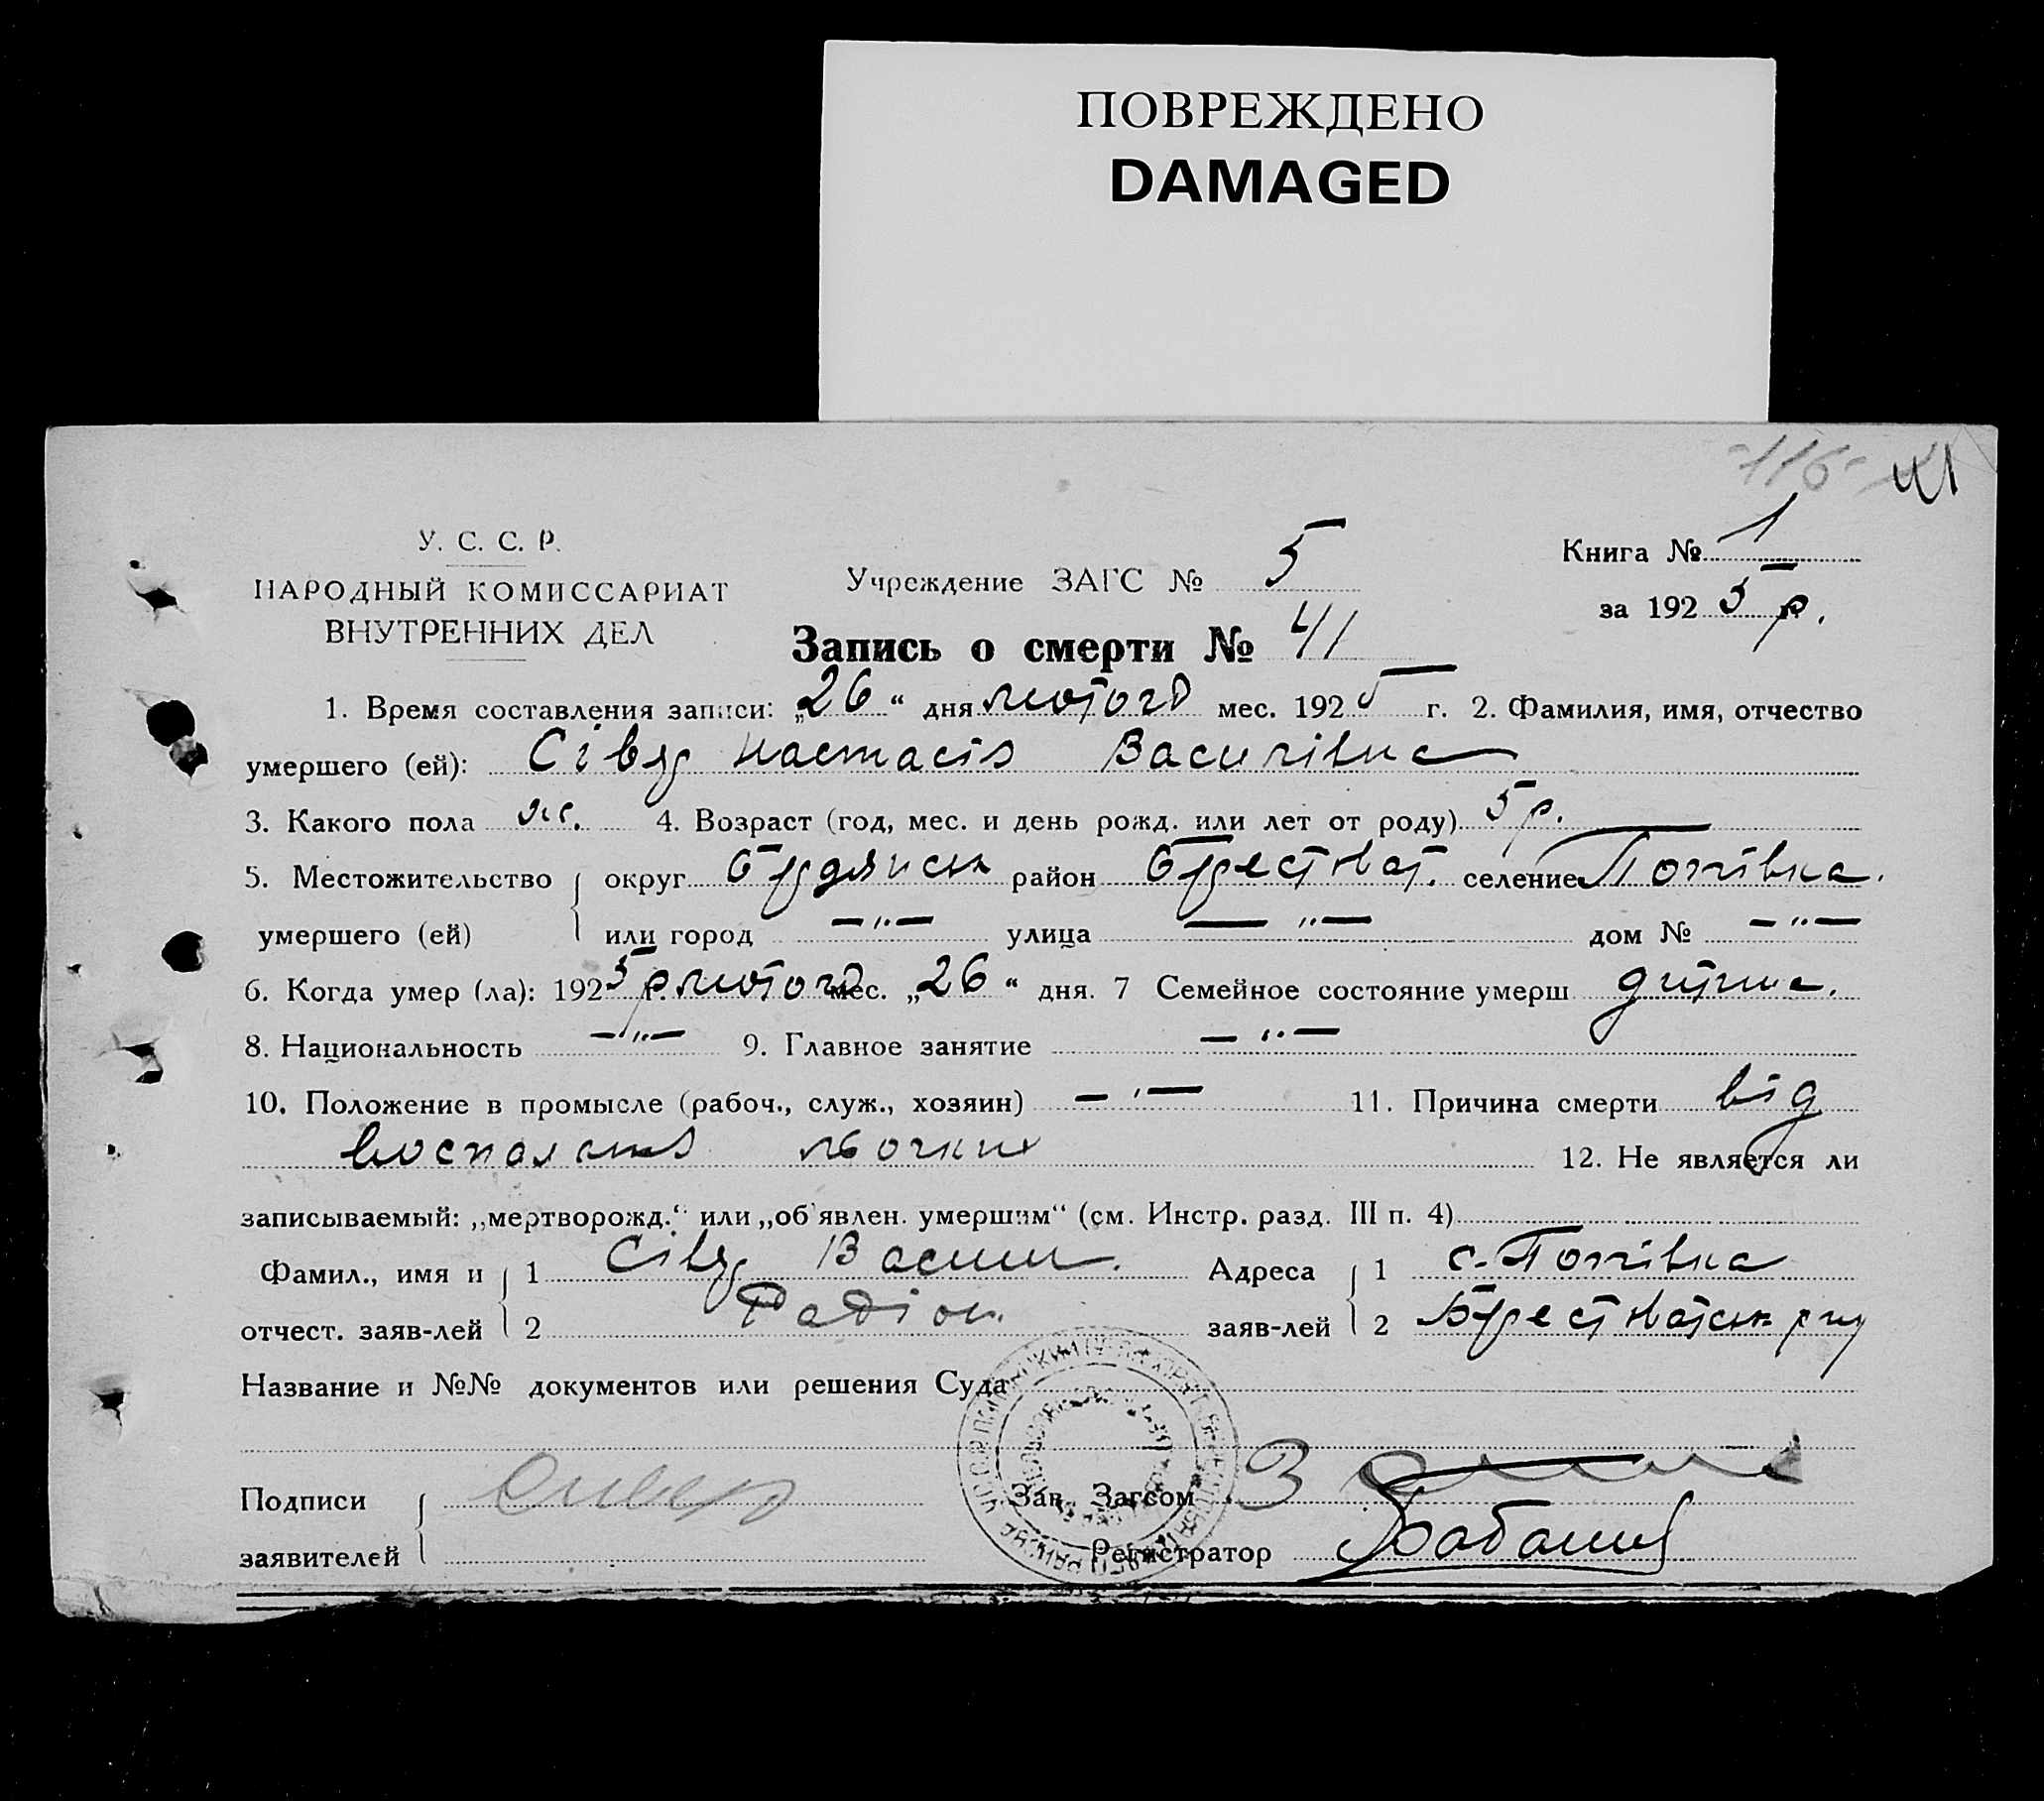 ПОВРЕЖДЕНО
DAMAGED
-116- 41
У. С. С. Р.
НАРОДНЫЙ КОМИССАРИАТ
ВНУТРЕННИХ ДЕЛ
Учреждение ЗАГС № 5
Книга № 1
за 1925 р.
Запись о смерти № 41
1. Время составления записи: „26“ дня лютого мес. 1925 г. 2. Фамилия, имя, отчество
умершего (ей): Настасія Василівна
3. Какого пола ж. 4. Возраст (год, мес. и день рожд. или лет от роду) 5 р.
5. Местожительство умершего (ей) { округ район селение Попівка.
или город —"— улица —"— дом № —"—
6. Когда умер (ла): 1925 р. лютого мес. „26“ дня. 7 Семейное состояние умерш дитина.
8. Национальность —"— 9. Главное занятие —"—
10. Положение в промысле (рабоч., служ., хозяин) —"— 11. Причина смерти від
12. Не является ли
записываемый: „мертворожд.“ или „об'явлен. умершим“ (см. Инстр. разд. III п. 4)
Фамил., имя и отчест. заяв-лей { 1 Василь Адреса заяв-лей { 1 с. Попівка
2 Радіон 2
Название и №№ документов или решения Суда
Подписи заявителей { Зав. Загсом
Регистратор